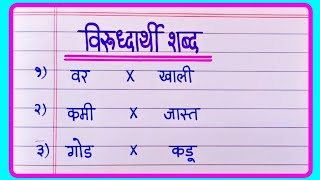 विरूध्दार्थी शब्द
१) वर X खाली
२) कमी X जास्त
३) गोड X कडू